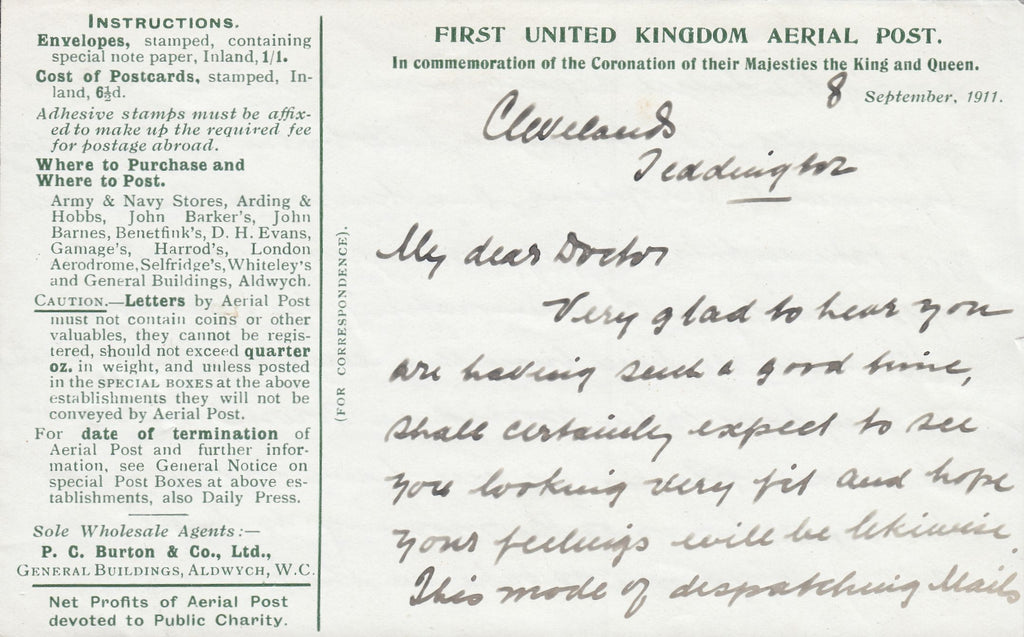 INSTRUCTIONS.
Envelopes, stamped, containing
special note paper, Inland, 1/1.
Cost of Postcards, stamped, In-
land, 6½d.
Adhesive stamps must be affix-
ed to make up the required fee
for postage abroad.
Where to Purchase and
Where to Post.
Army & Navy Stores, Arding &
Hobbs, John Barker's, John
Barnes, Benetfink's, D. H. Evans,
Gamage's, Harrod's, London
Aerodrome, Selfridge's, Whiteley's
and General Buildings, Aldwych.
CAUTION.—Letters by Aerial Post
must not contain coins or other
valuables, they cannot be regis-
tered, should not exceed quarter
oz. in weight, and unless posted
in the SPECIAL BOXES at the above
establishments they will not be
conveyed by Aerial Post.
For date of termination of
Aerial Post and further infor-
mation, see General Notice on
special Post Boxes at above es-
tablishments, also Daily Press.
Sole Wholesale Agents:—
P. C. Burton & Co., Ltd.,
GENERAL BUILDINGS, ALDWYCH, W.C.
Net Profits of Aerial Post
devoted to Public Charity.
(FOR CORRESPONDENCE).
FIRST UNITED KINGDOM AERIAL POST.
In commemoration of the Coronation of their Majesties the King and Queen.
8 September, 1911.
Clevelands
Teddington
My dear Doctor
Very glad to hear you
are having such a good time,
shall certainly expect to see
you looking very fit and hope
your feelings will be likewise.
This mode of despatching Mails